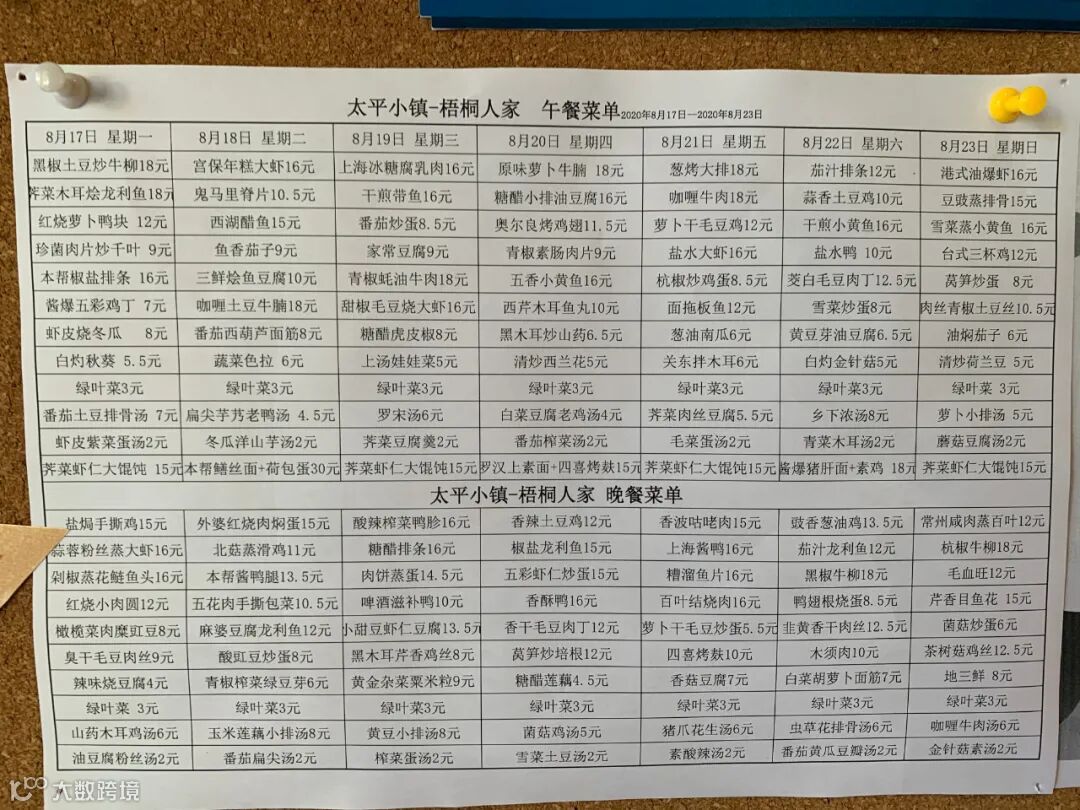 太平小镇-梧桐人家 午餐菜单2020年8月17日—2020年8月23日
8月17日 星期一 8月18日 星期二 8月19日 星期三 8月20日 星期四 8月21日 星期五 8月22日 星期六 8月23日 星期日
黑椒土豆炒牛柳18元 宫保年糕大虾16元 上海冰糖腐乳肉16元 原味萝卜牛腩 18元 葱烤大排18元 茄汁排条12元 港式油爆虾16元
荠菜木耳烩龙利鱼18元 鬼马里脊片10.5元 干煎带鱼16元 糖醋小排油豆腐16元 咖喱牛肉18元 蒜香土豆鸡10元 豆豉蒸排骨15元
红烧萝卜鸭块 12元 西湖醋鱼15元 番茄炒蛋8.5元 奥尔良烤鸡翅11.5元 萝卜干毛豆鸡12元 干煎小黄鱼16元 雪菜蒸小黄鱼 16元
珍菌肉片炒千叶 9元 鱼香茄子9元 家常豆腐9元 青椒素肠肉片9元 盐水大虾16元 盐水鸭 10元 台式三杯鸡12元
本帮椒盐排条 16元 三鲜烩鱼豆腐10元 青椒蚝油牛肉18元 五香小黄鱼16元 杭椒炒鸡蛋8.5元 茭白毛豆肉丁12.5元 莴笋炒蛋 8元
酱爆五彩鸡丁 7元 咖喱土豆牛腩18元 甜椒毛豆烧大虾16元 西芹木耳鱼丸10元 面拖板鱼12元 雪菜炒蛋8元 肉丝青椒土豆丝10.5元
虾皮烧冬瓜 8元 番茄西葫芦面筋8元 糖醋虎皮椒8元 黑木耳炒山药6.5元 葱油南瓜6元 黄豆芽油豆腐6.5元 油焖茄子 6元
白灼秋葵 5.5元 蔬菜色拉 6元 上汤娃娃菜5元 清炒西兰花5元 关东拌木耳6元 白灼金针菇5元 清炒荷兰豆 5元
绿叶菜3元 绿叶菜3元 绿叶菜3元 绿叶菜3元 绿叶菜3元 绿叶菜3元 绿叶菜 3元
番茄土豆排骨汤 7元 扁尖芋艿老鸭汤 4.5元 罗宋汤6元 白菜豆腐老鸡汤4元 荠菜肉丝豆腐5.5元 乡下浓汤8元 萝卜小排汤 5元
虾皮紫菜蛋汤2元 冬瓜洋山芋汤2元 荠菜豆腐羹2元 番茄榨菜汤2元 毛菜蛋汤2元 青菜木耳汤2元 蘑菇豆腐汤2元
荠菜虾仁大馄饨 15元 本帮鳝丝面+荷包蛋30元 荠菜虾仁大馄饨15元 罗汉上素面+四喜烤麸15元 荠菜虾仁大馄饨15元 酱爆猪肝面+素鸡 18元 荠菜虾仁大馄饨15元
太平小镇-梧桐人家 晚餐菜单
盐焗手撕鸡15元 外婆红烧肉焖蛋15元 酸辣榨菜鸭胗16元 香辣土豆鸡12元 香波咕咾肉15元 豉香葱油鸡13.5元 常州咸肉蒸百叶12元
蒜蓉粉丝蒸大虾16元 北菇蒸滑鸡11元 糖醋排条16元 椒盐龙利鱼15元 上海酱鸭16元 茄汁龙利鱼12元 杭椒牛柳18元
剁椒蒸花鲢鱼头16元 本帮酱鸭腿13.5元 肉饼蒸蛋14.5元 五彩虾仁炒蛋15元 糟溜鱼片16元 黑椒牛柳18元 毛血旺12元
红烧小肉圆12元 五花肉手撕包菜10.5元 啤酒滋补鸭10元 香酥鸭16元 百叶结烧肉16元 鸭翅根烧蛋8.5元 芹香目鱼花 15元
橄榄菜肉糜豇豆8元 麻婆豆腐龙利鱼12元 小甜豆虾仁豆腐13.5元 香干毛豆肉丁12元 萝卜干毛豆炒蛋5.5元 韭黄香干肉丝12.5元 菌菇炒蛋6元
臭干毛豆肉丝9元 酸豇豆炒蛋8元 黑木耳芹香鸡丝8元 莴笋炒培根12元 四喜烤麸10元 木须肉10元 茶树菇鸡丝12.5元
辣味烧豆腐4元 青椒榨菜绿豆芽6元 黄金杂菜粟米粒9元 糖醋莲藕4.5元 香菇豆腐7元 白菜胡萝卜面筋7元 地三鲜 8元
绿叶菜 3元 绿叶菜3元 绿叶菜3元 绿叶菜3元 绿叶菜3元 绿叶菜3元 绿叶菜3元
山药木耳鸡汤6元 玉米莲藕小排汤8元 黄豆小排汤8元 菌菇鸡汤5元 猪爪花生汤6元 虫草花排骨汤6元 咖喱牛肉汤6元
油豆腐粉丝汤2元 番茄扁尖汤2元 榨菜蛋汤2元 雪菜土豆汤2元 素酸辣汤2元 番茄黄瓜豆瓣汤2元 金针菇素汤2元
大数跨境